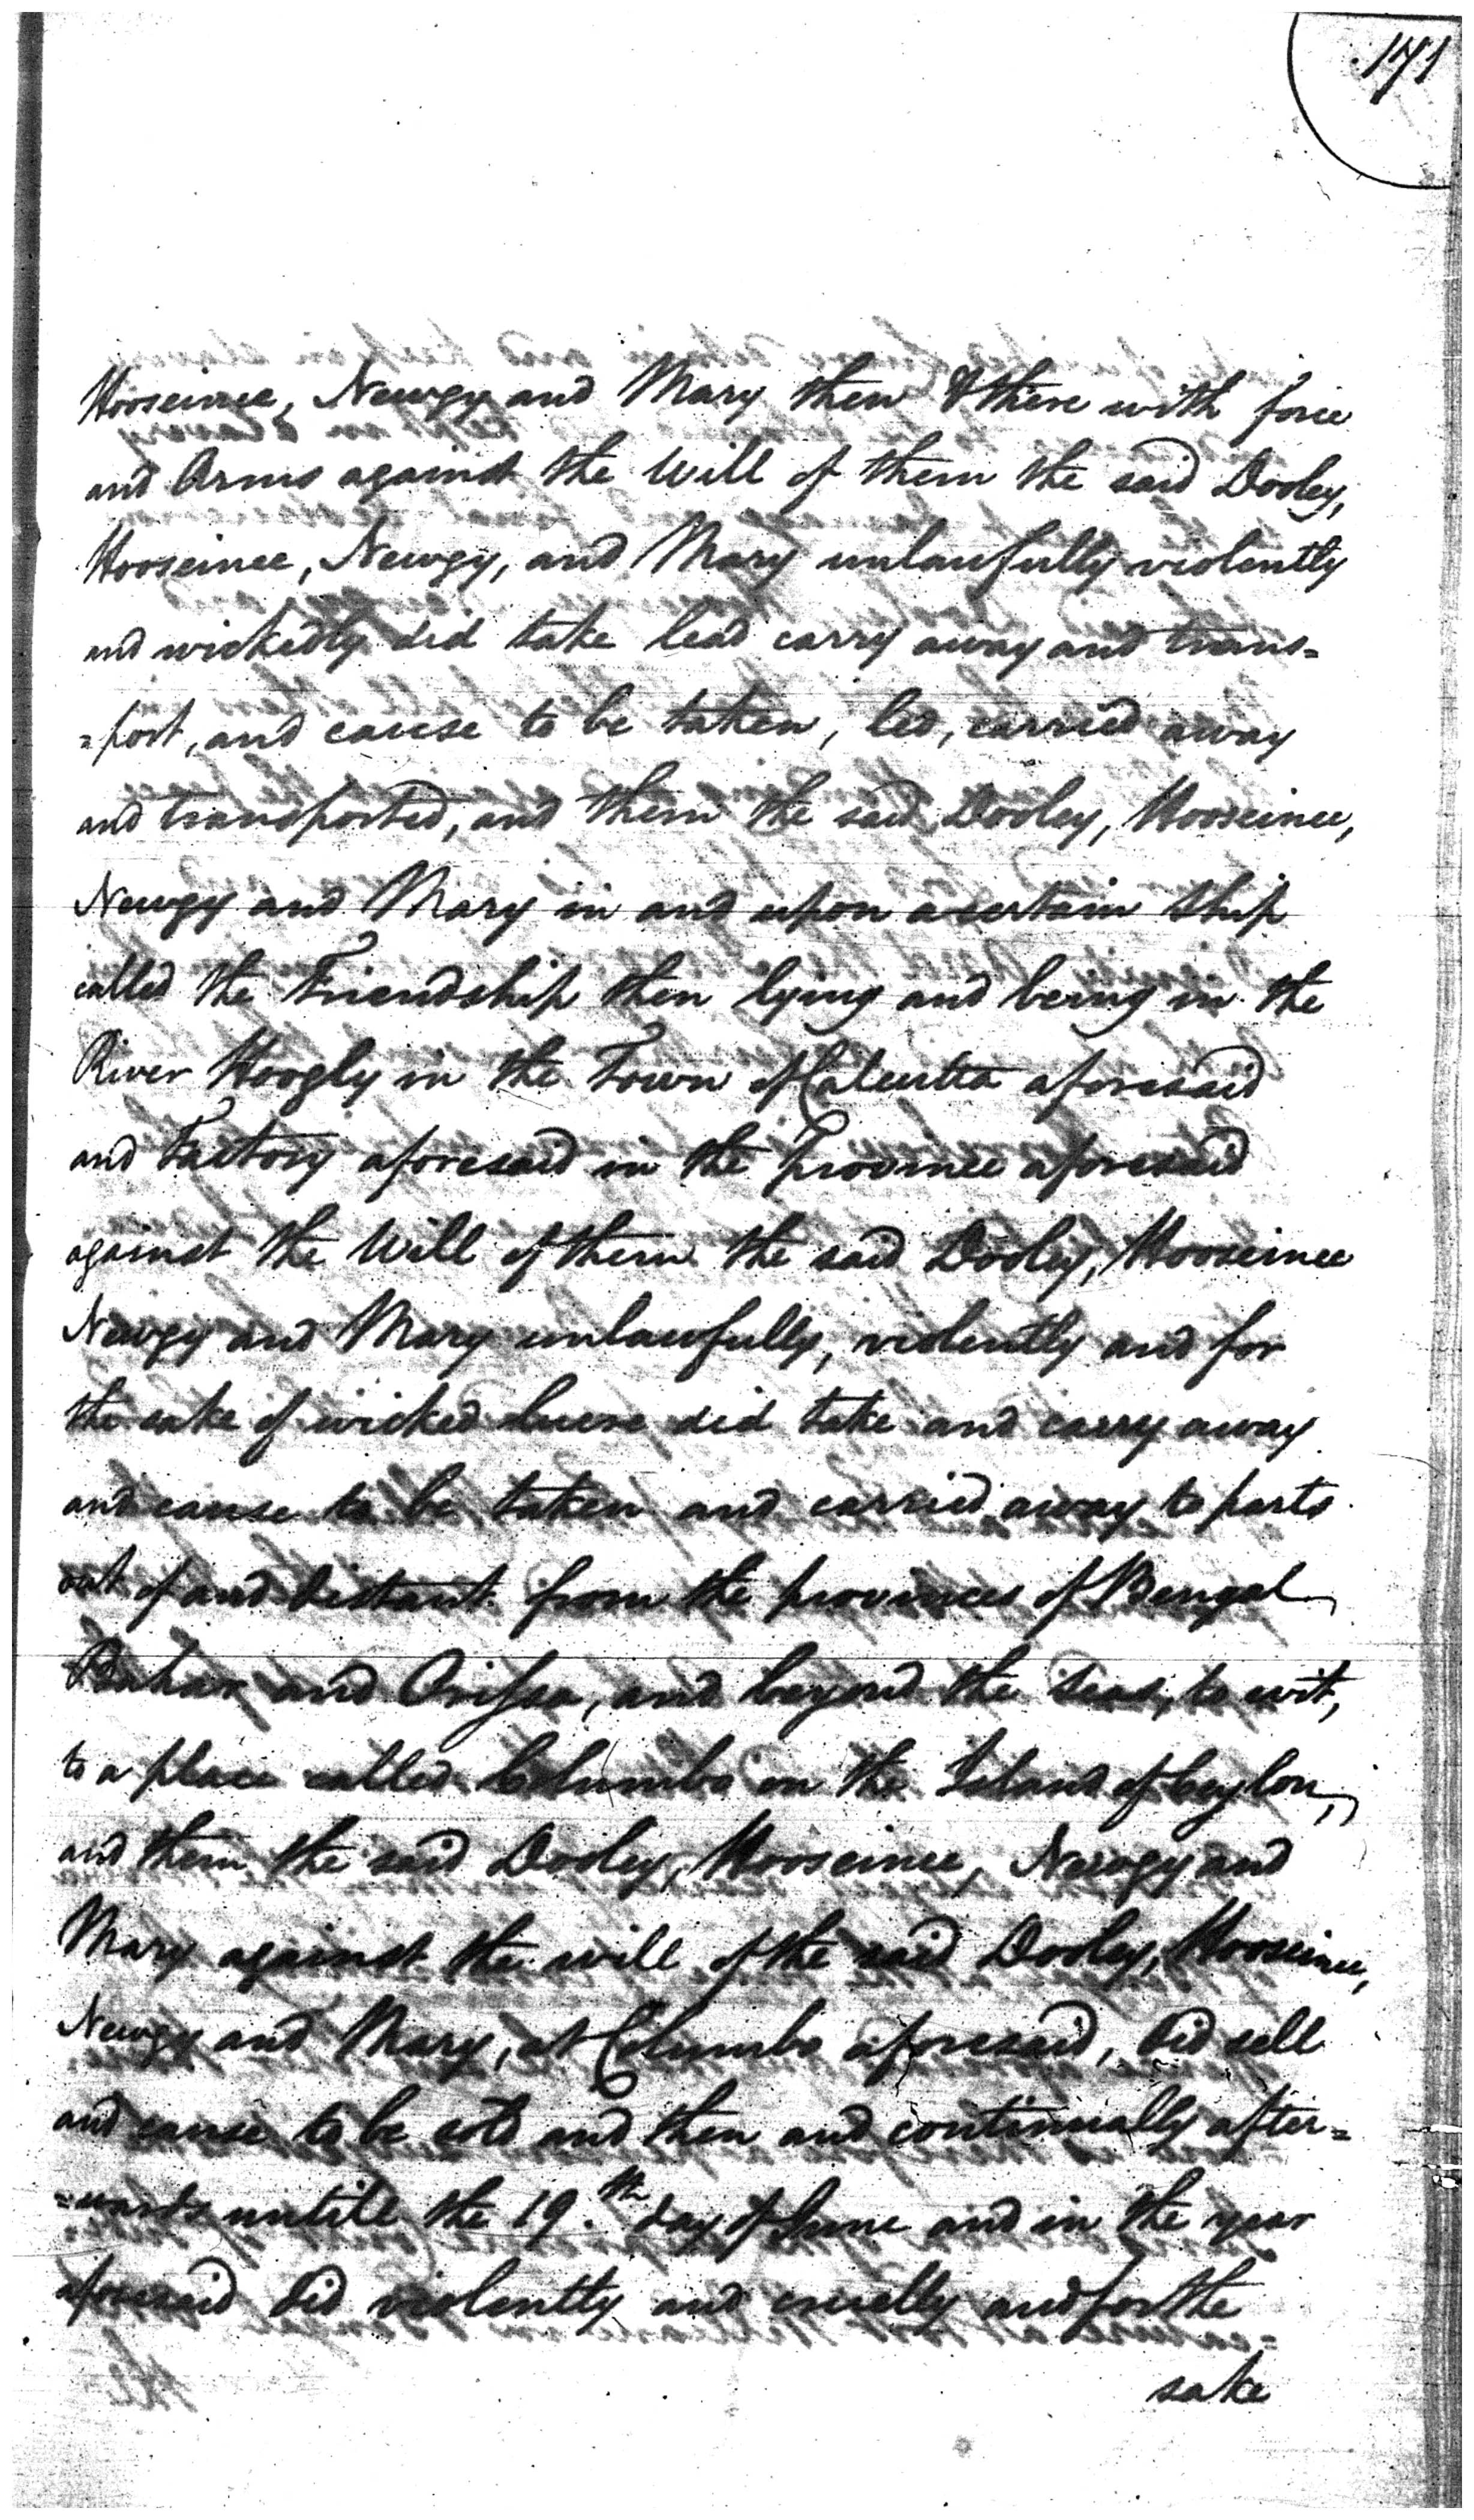 171
Hooseinee, Newgy and Mary then & there with force
and Arms against the Will of them the said Dooley,
Hooseinee, Newgy, and Mary unlawfully violently
and wickedly did take lead carry away and trans=
=port, and cause to be taken, led, carried away
and transported, and them the said Dooley, Hooseinee,
Newgy and Mary in and upon a certain Ship
called the Friendship then lying and being in the
River Hoogly in the Town of Calcutta aforesaid
and Factory aforesaid in the Province aforesaid
against the Will of them the said Dooley, Hooseinee
Newgy and Mary unlawfully, violently and for
the sake of wicked lucre did take and carry away
and cause to be taken and carried away to parts
out of and distant from the provinces of Bengal
Bahar and Orissa, and beyond the Seas, to wit,
to a place called Columbo on the Island of Ceylon,
and them the said Dooley, Hooseinee, Newgy and
Mary against the will of the said Dooley, Hooseinee,
Newgy and Mary, at Columbo aforesaid, did sell
and cause to be sold and then and continually after=
=wards untill the 19.th day of June and in the year
aforesaid did violently and cruelly and for the
sake